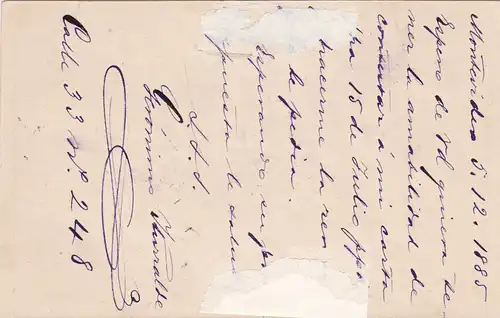 Montevideo 5. 12. 1885
Espero de Vd quiera te-
ner la amabilidad de
contestar á mi carta
15 de Julio ppo
hacerme la
le pedia.
Esperando su
puesta le
S. S. S.
Gerónimo Iturralde
Calle 33 Nº 248